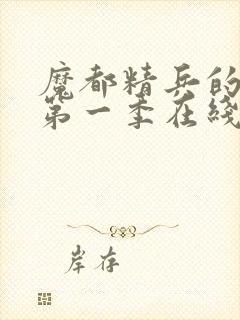 魔都精兵的
第一季在线
岸存